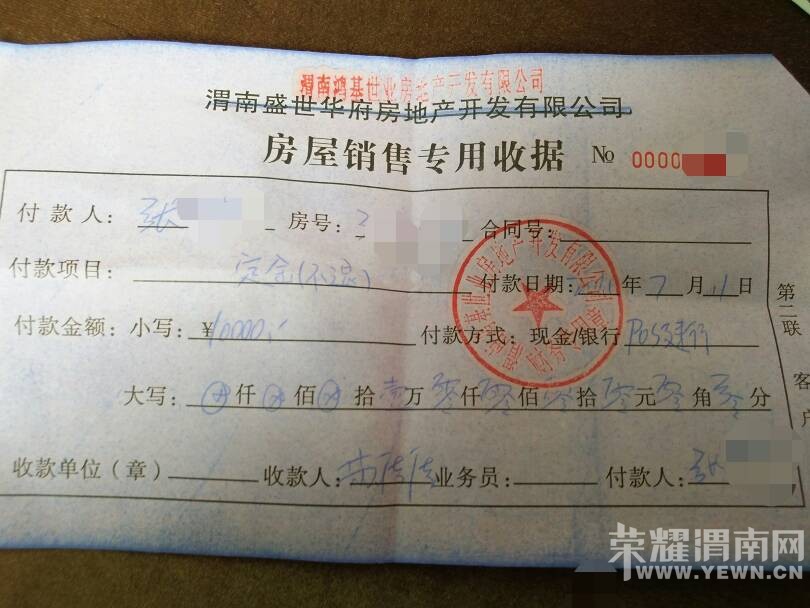 渭南鸿基世业房地产开发有限公司
渭南盛世华府房地产开发有限公司
房屋销售专用收据 № 0000
付款人：张 房号： 合同号：
付款项目：定金(不退) 付款日期： 年7月 日
付款金额：小写：¥10000 付款方式：现金/银行 POS建行
大写：⊗仟⊗佰⊗拾壹万零仟零佰零拾零元零角零分
收款单位（章） 收款人： 业务员： 付款人：张
第二联 客户
渭南鸿基世业房地产开发有限公司
财务专用章
荣耀渭南网
WWW.YEWN.CN